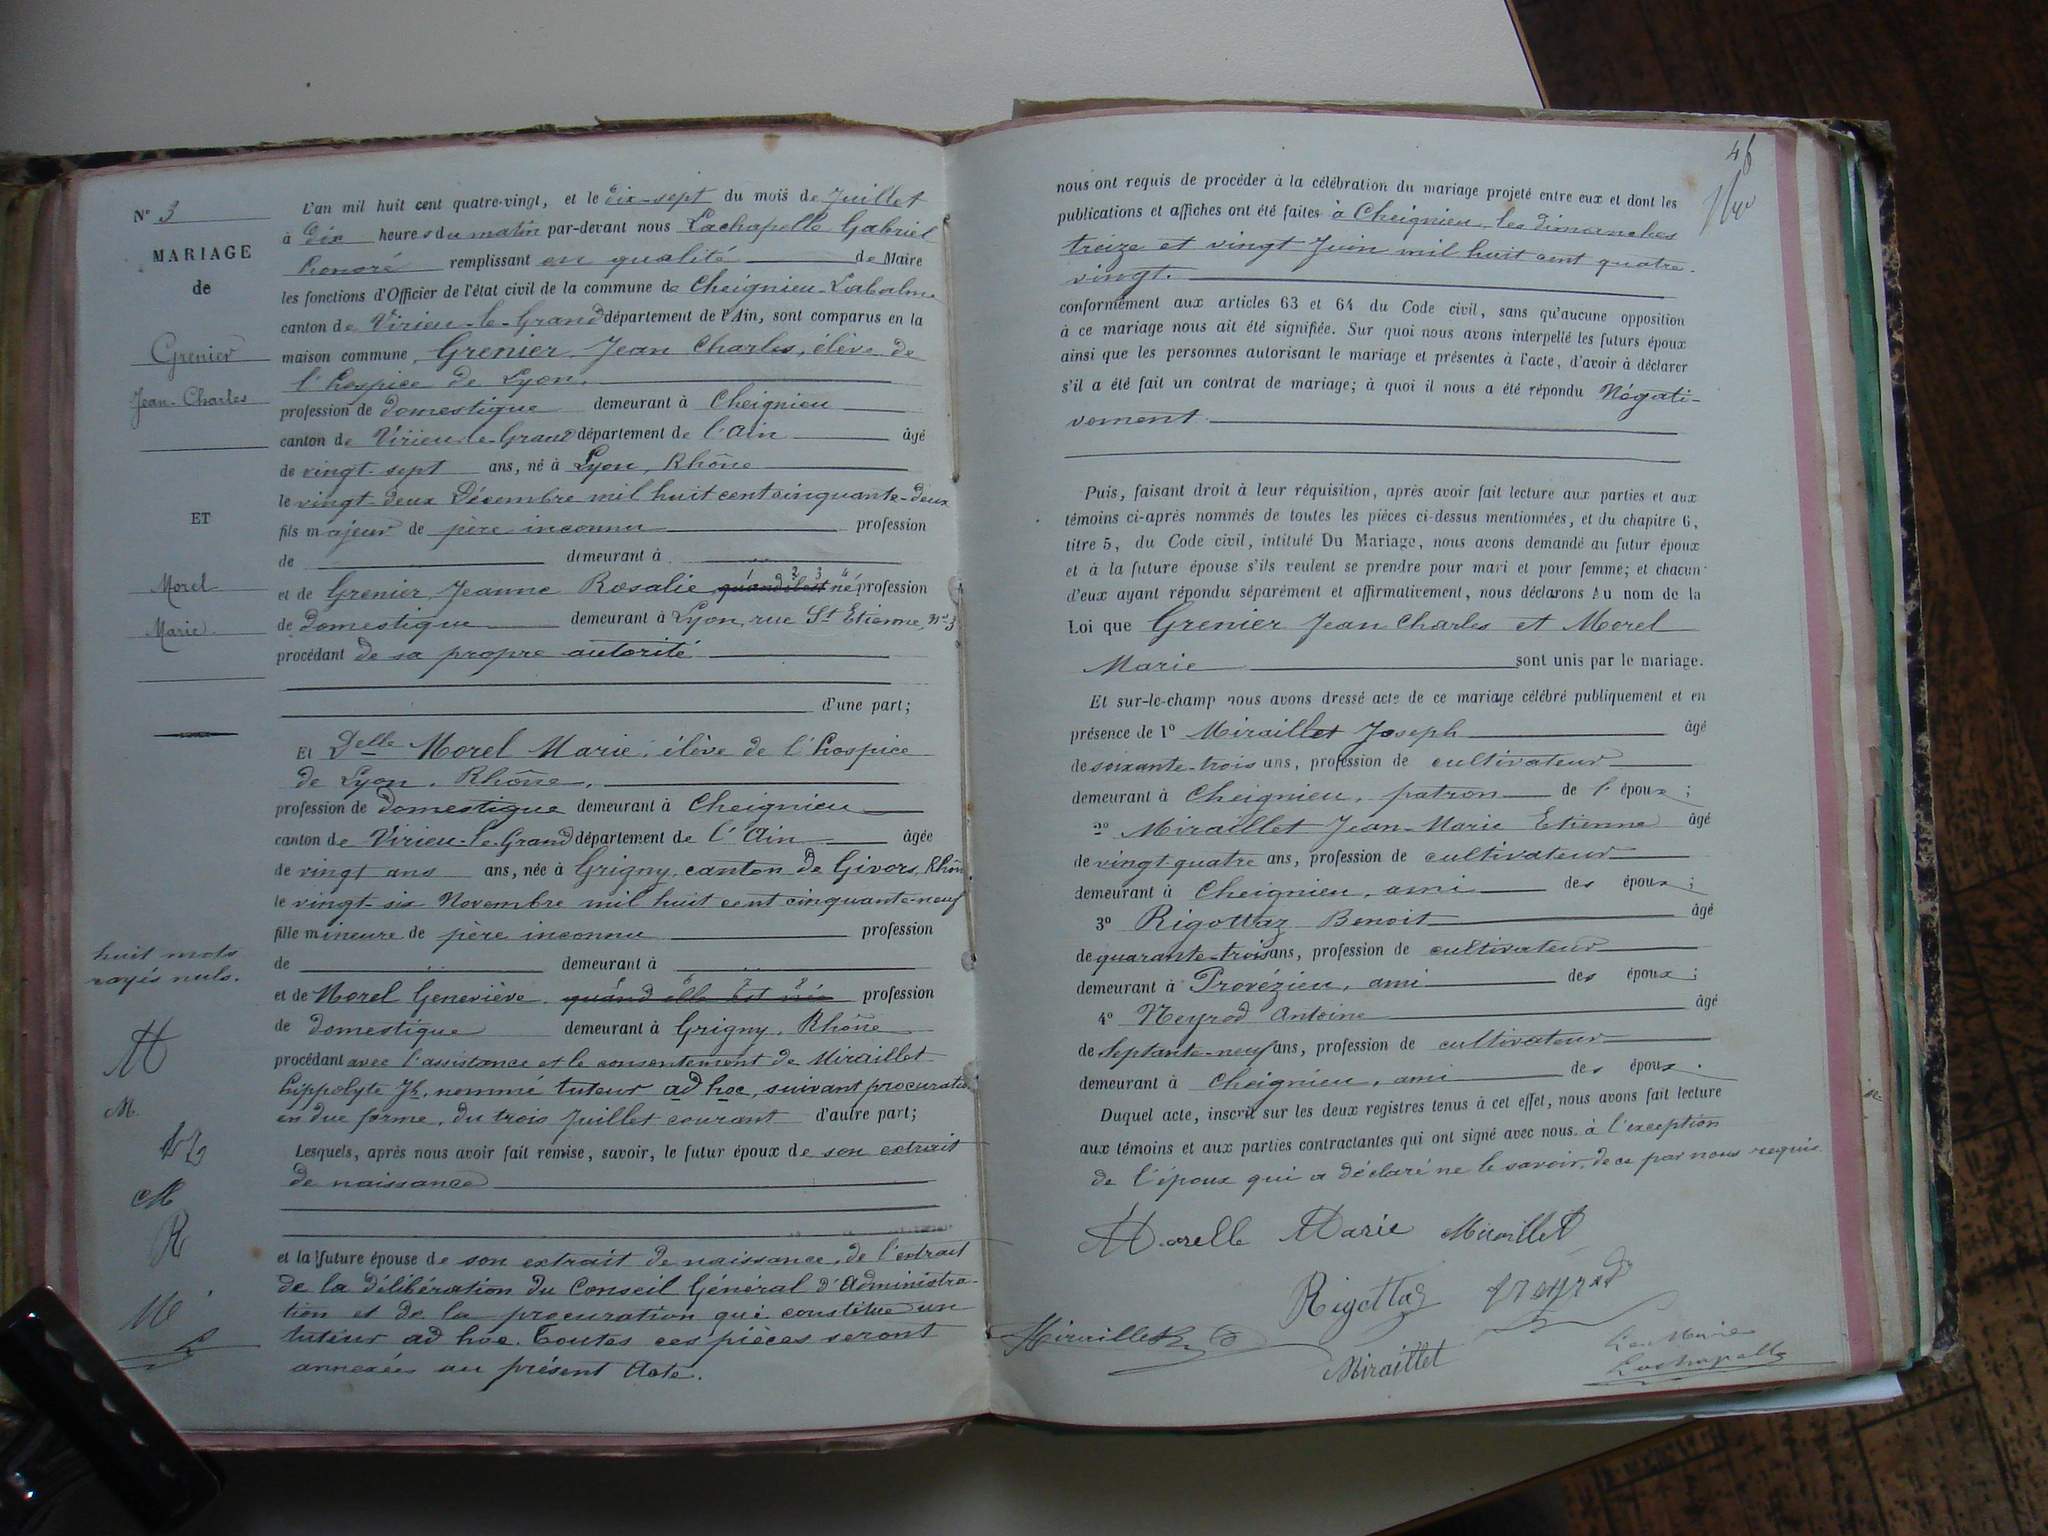 N° 3
MARIAGE
de
Grenier
Jean-Charles
ET
Morel
Marie
huit mots
rayés nuls.
L'an mil huit cent quatre-vingt, et le dix-sept du mois de Juillet
à dix heures du matin par-devant nous Lachapelle Gabriel
honoré remplissant en qualité de Maire
les fonctions d'Officier de l'état civil de la commune de Cheignieu-Labalme
canton de Virieu-le-Grand département de l'Ain, sont comparus en la
maison commune, Grenier Jean Charles, élève de
l'hospice de Lyon,
profession de domestique demeurant à Cheignieu
canton de Virieu-le-Grand département de l'Ain âgé
de vingt-sept ans, né à Lyon, Rhône
le vingt-deux Décembre mil huit cent cinquante-deux
fils majeur de père inconnu profession
de demeurant à
et de Grenier Jeanne Rosalie quand il est né profession
de domestique demeurant à Lyon, rue St Etienne, N° 3
procédant de sa propre autorité
d'une part;
Et Delle Morel Marie, élève de l'hospice
de Lyon, Rhône,
profession de domestique demeurant à Cheignieu
canton de Virieu-le-Grand département de l'Ain âgée
de vingt ans ans, née à Grigny, canton de Givors, Rhône
le vingt-six Novembre mil huit cent cinquante-neuf
fille mineure de père inconnu profession
de demeurant à
et de Morel Geneviève quand elle est née profession
de domestique demeurant à Grigny, Rhône
procédant avec l'assistance et le consentement de Miraillet
hippolyte Jh, nommé tuteur ad hoc, suivant procuration
en due forme, du trois Juillet courant d'autre part;
Lesquels, après nous avoir fait remise, savoir, le futur époux de son extrait
de naissance
et la future épouse de son extrait de naissance, de l'extrait
de la délibération du Conseil Général d'Administra-
tion et de la procuration qui constitue un
tuteur ad hoc. Toutes ces pièces seront
annexées au présent Acte.
46
nous ont requis de procéder à la célébration du mariage projeté entre eux et dont les
publications et affiches ont été faites à Cheignieu, les dimanches
treize et vingt Juin mil huit cent quatre-
vingt.
conformément aux articles 63 et 64 du Code civil, sans qu'aucune opposition
à ce mariage nous ait été signifiée. Sur quoi nous avons interpellé les futurs époux
ainsi que les personnes autorisant le mariage et présentes à l'acte, d'avoir à déclarer
s'il a été fait un contrat de mariage; à quoi il nous a été répondu Négati-
vement.
Puis, faisant droit à leur réquisition, après avoir fait lecture aux parties et aux
témoins ci-après nommés de toutes les pièces ci-dessus mentionnées, et du chapitre 6,
titre 5, du Code civil, intitulé Du Mariage, nous avons demandé au futur époux
et à la future épouse s'ils veulent se prendre pour mari et pour femme; et chacun
d'eux ayant répondu séparément et affirmativement, nous déclarons Au nom de la
Loi que Grenier Jean Charles et Morel
Marie sont unis par le mariage.
Et sur-le-champ nous avons dressé acte de ce mariage célébré publiquement et en
présence de 1° Miraillet Joseph âgé
de soixante-trois ans, profession de cultivateur
demeurant à Cheignieu, patron de l'époux;
2° Miraillet Jean-Marie Etienne âgé
de vingt-quatre ans, profession de cultivateur
demeurant à Cheignieu, ami des époux;
3° Rigottaz Benoit âgé
de quarante-trois ans, profession de cultivateur
demeurant à Provézieu, ami des époux;
4° Neyrod Antoine âgé
de septante-neuf ans, profession de cultivateur
demeurant à Cheignieu, ami des époux.
Duquel acte, inscrit sur les deux registres tenus à cet effet, nous avons fait lecture
aux témoins et aux parties contractantes qui ont signé avec nous à l'exception
de l'époux qui a déclaré ne le savoir, de ce par nous requis.
Morelle Marie Miraillet
Rigottaz Neyrod
Miraillet
Miraillet
Le Maire
Lachapelle